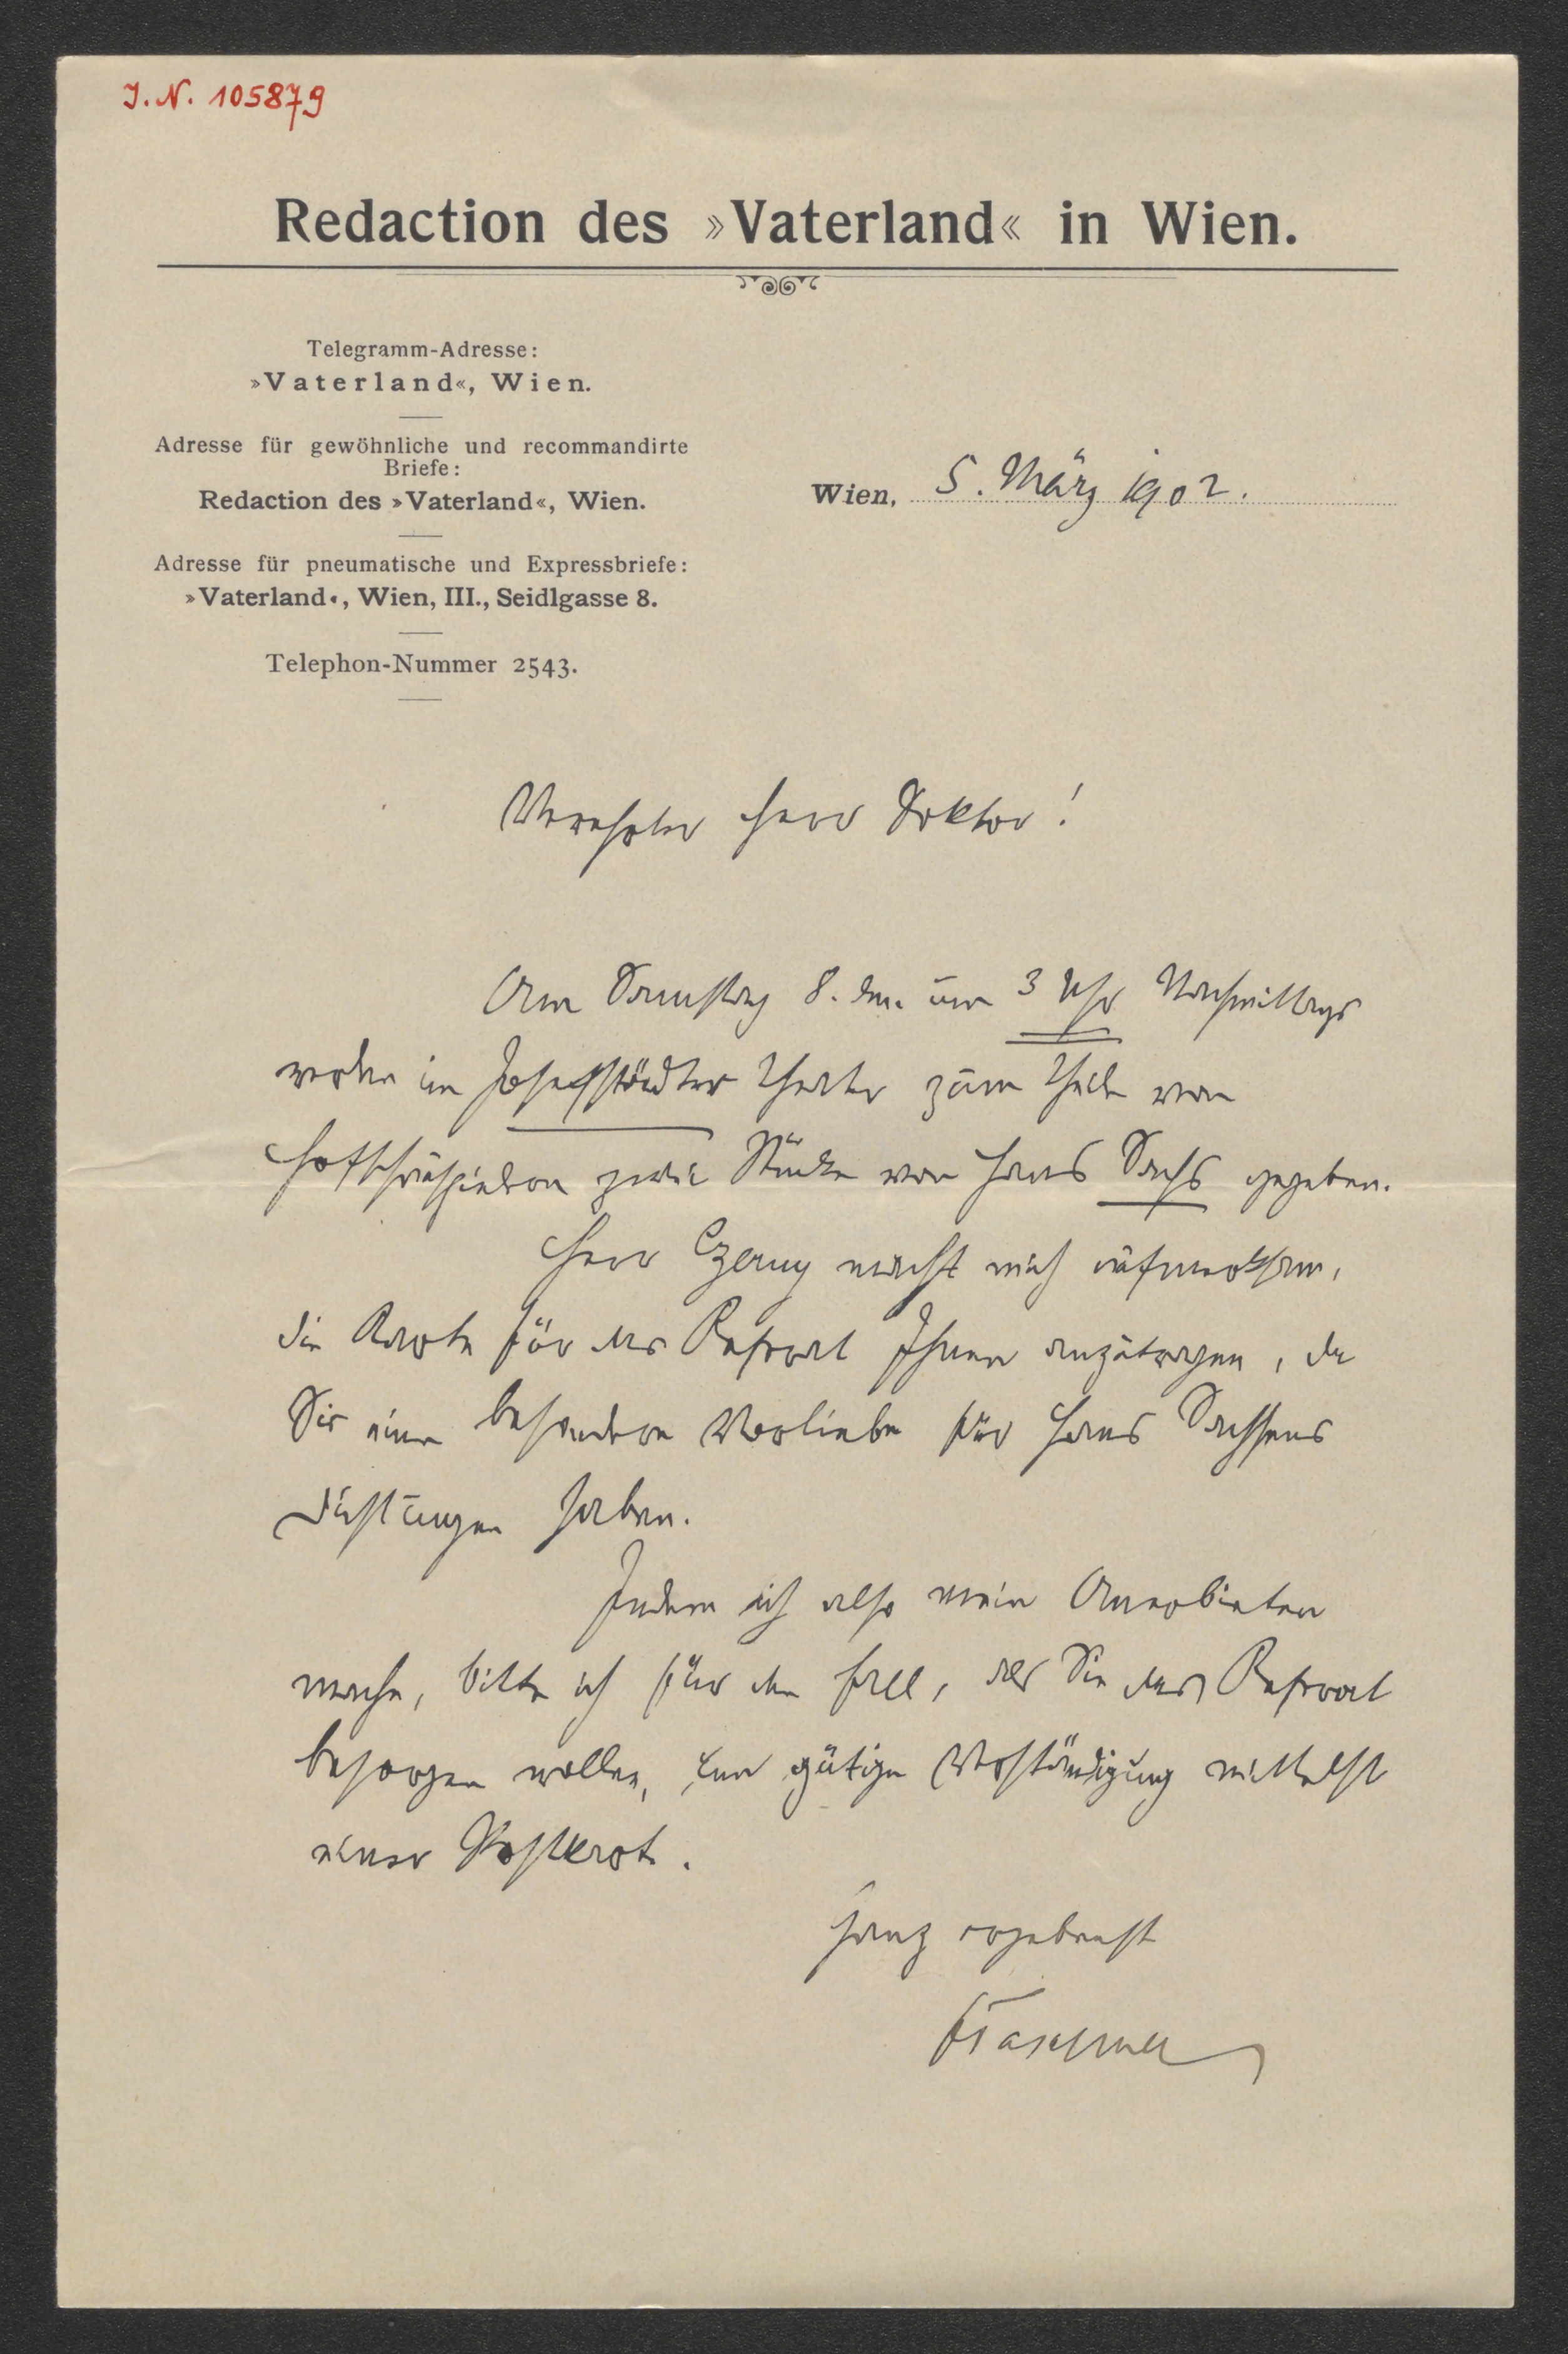 J. N. 105879
Redaction des »Vaterland« in Wien.
Telegramm-Adresse:
»Vaterland«, Wien.
Adresse für gewöhnliche und recommandirte
Briefe:
Redaction des »Vaterland«, Wien.
Wien, 5. März 1902.
Adresse für pneumatische und Expressbriefe:
»Vaterland«, Wien, III., Seidlgasse 8.
Telephon-Nummer 2543.
Verehrter Herr Doktor!
Am Samstag 8. dm. um 3 Uhr Nachmittags
werden im Josefstädter Theater zum Theile von
Hofschauspielern zwei Stücke von Hans Sachs gegeben.
Herr Czerny macht mich aufmerksam,
die Karte für das Referat Ihnen anzutragen, da
Sie eine besondere Vorliebe für Hans Sachsens
Dichtungen haben.
Indem ich also mein Anerbieten
mache, bitte ich für den Fall, als Sie das Referat
besorgen wollen, um gütige Verständigung mittelst
einer Postkarte.
Ganz ergebenst